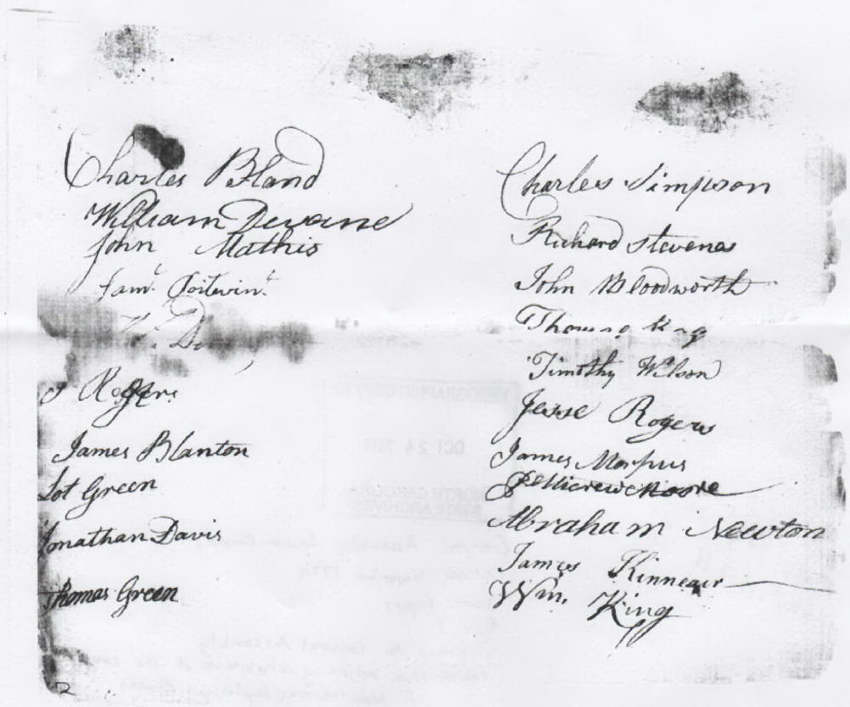 Charles Bland
William Devane
John Mathis
Saml. Poitevint
J Rogers
James Blanton
Lot Green
Jonathan Davis
Thomas Green
Charles Simpson
Richard Stevenes
John Bloodworth
Thomas King
Timothy Wilson
Jesse Rogers
James Morpus
Abraham Newton
James Kinnear
Wm. King